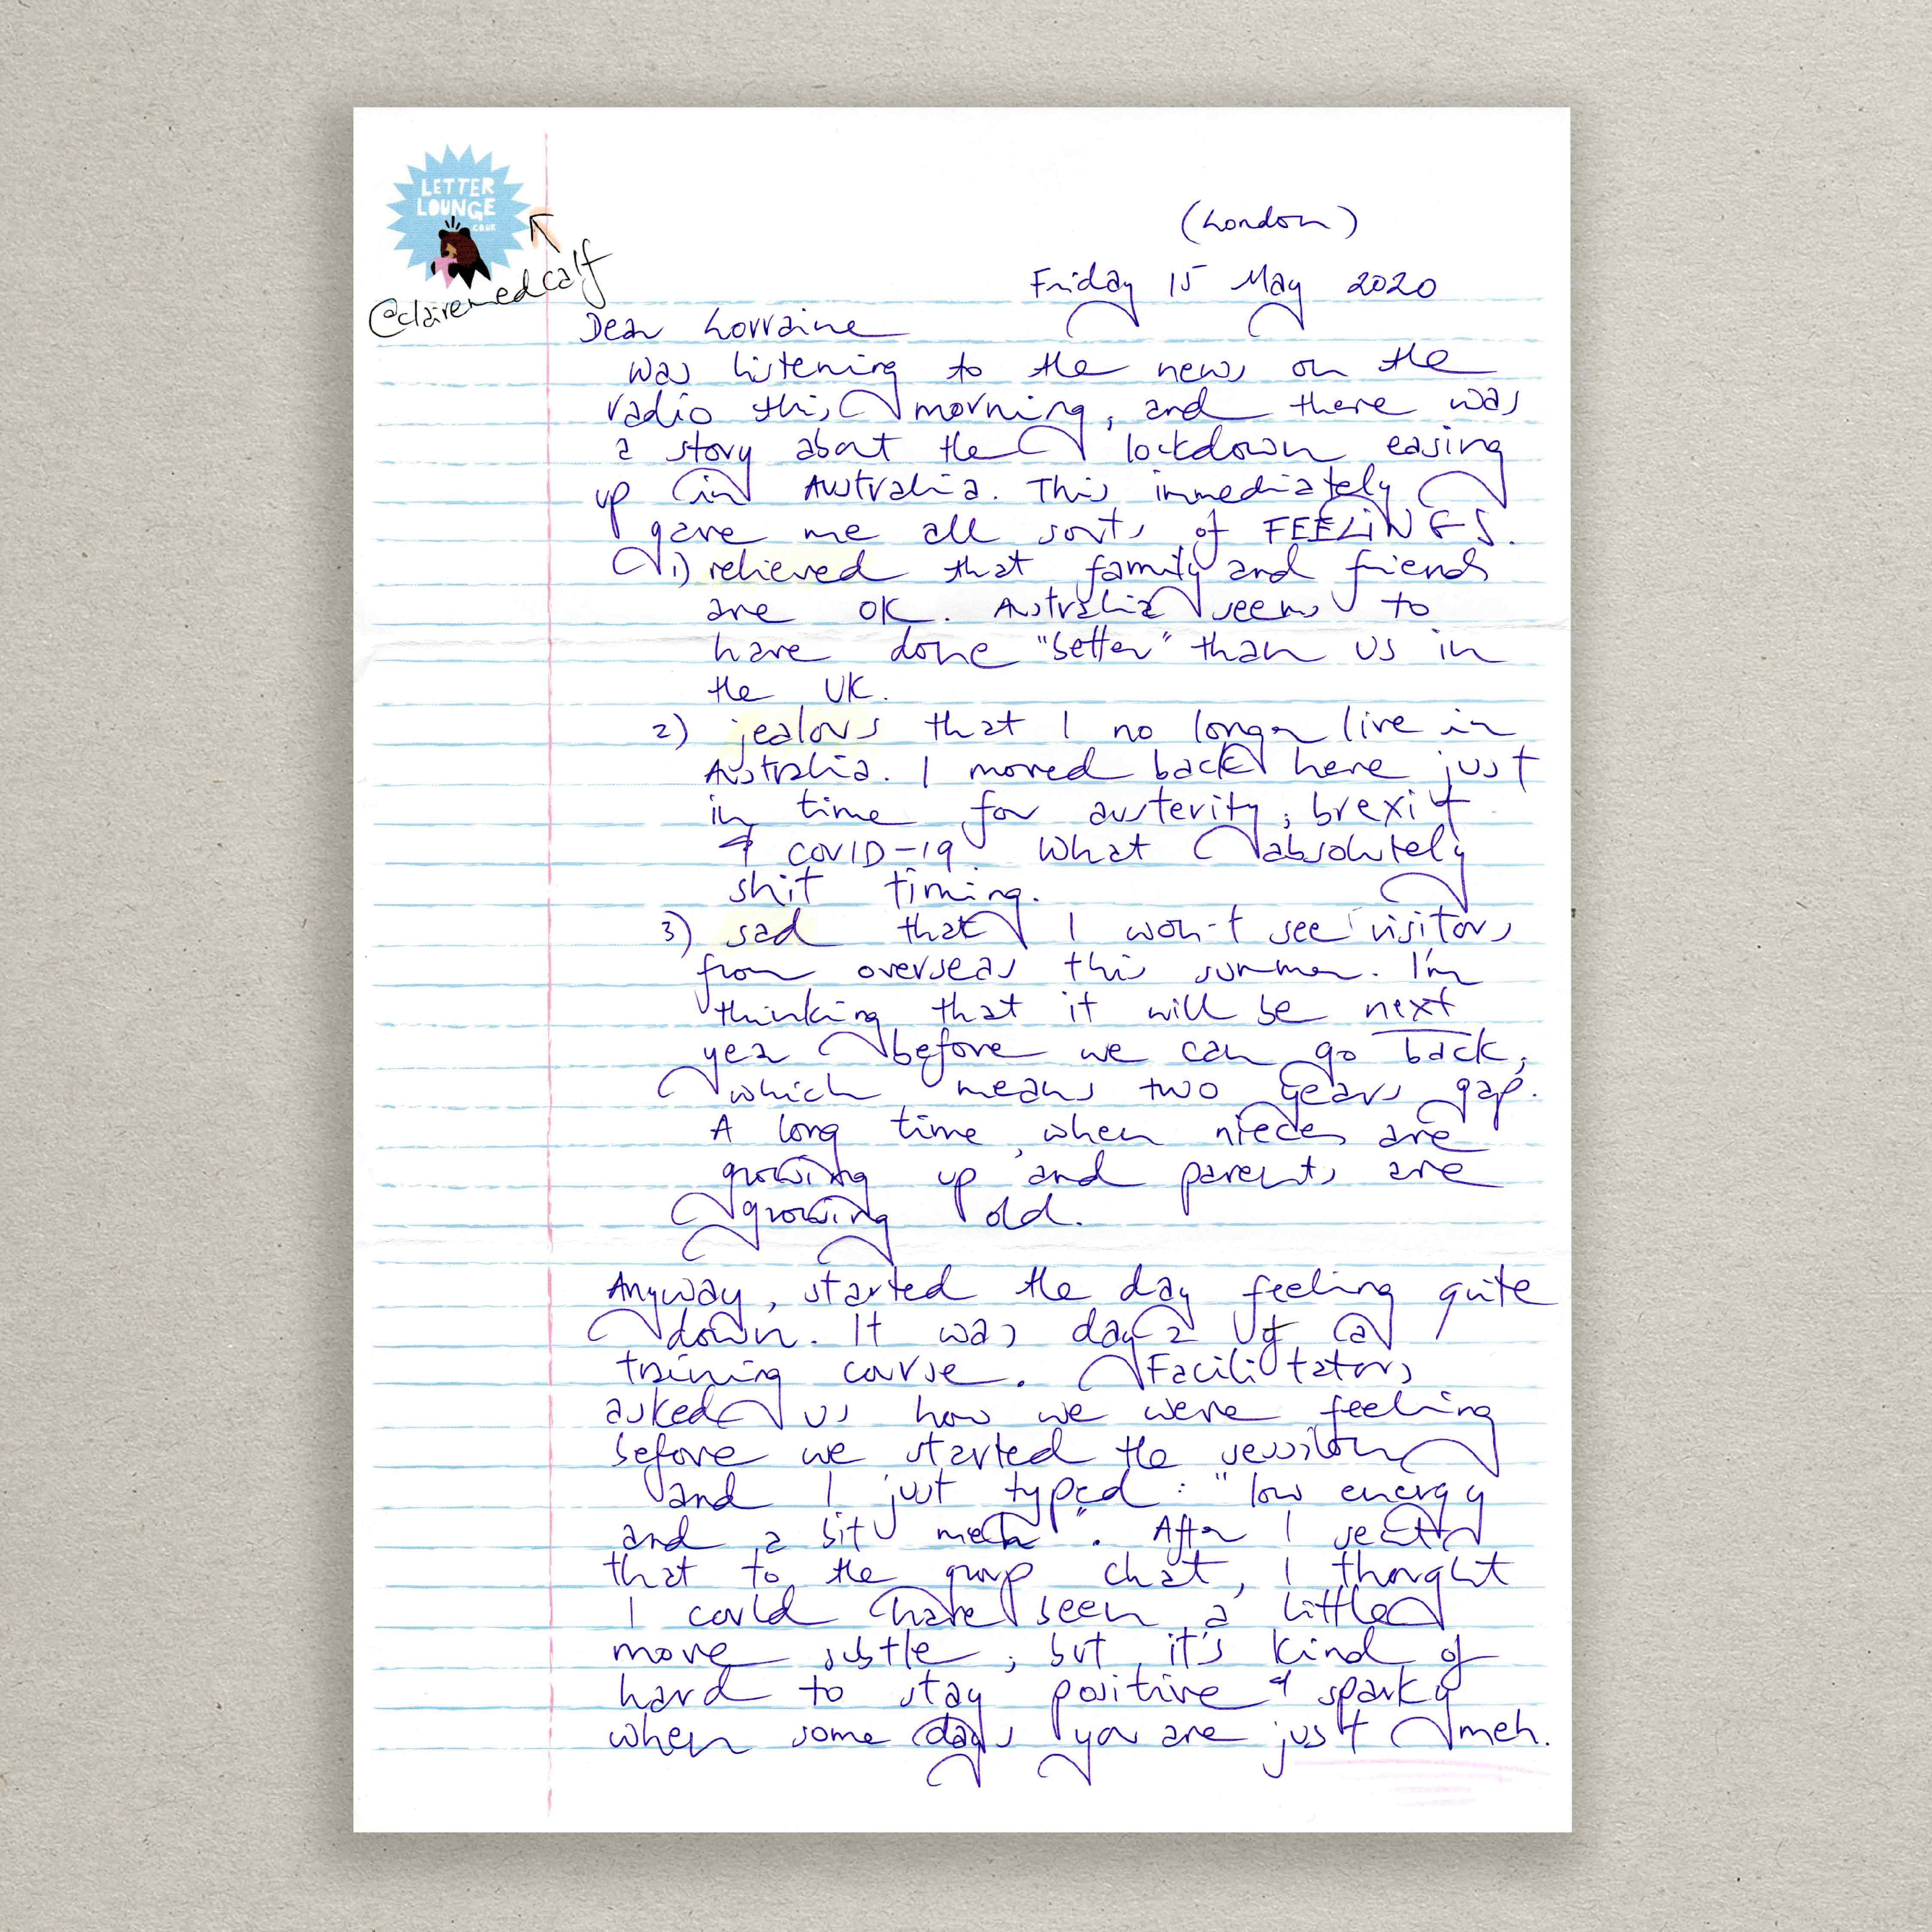 LETTER
LOUNGE
.CO.UK
@clairemedcalf
(London)
Friday 15 May 2020
Dear Lorraine
was listening to the news on the
radio this morning, and there was
a story about the lockdown easing
up in Australia. This immediately
gave me all sorts of FEELINGS.
1) relieved that family and friends
are OK. Australia seems to
have done "better" than us in
the UK.
2) jealous that I no longer live in
Australia. I moved back here just
in time for austerity, brexit
& COVID-19. What absolutely
shit timing.
3) sad that I won't see visitors
from overseas this summer. I'm
thinking that it will be next
year before we can go back,
which means two years gap.
A long time when nieces are
growing up and parents are
growing old.
Anyway, started the day feeling quite
down. It was day 2 of a
training course. Facilitators
asked us how we were feeling
before we started the session
and I just typed: "low energy
and a bit meh". After I sent
that to the group chat, I thought
I could have been a little
more subtle, but it's kind of
hard to stay positive & sparky
when some days you are just meh.